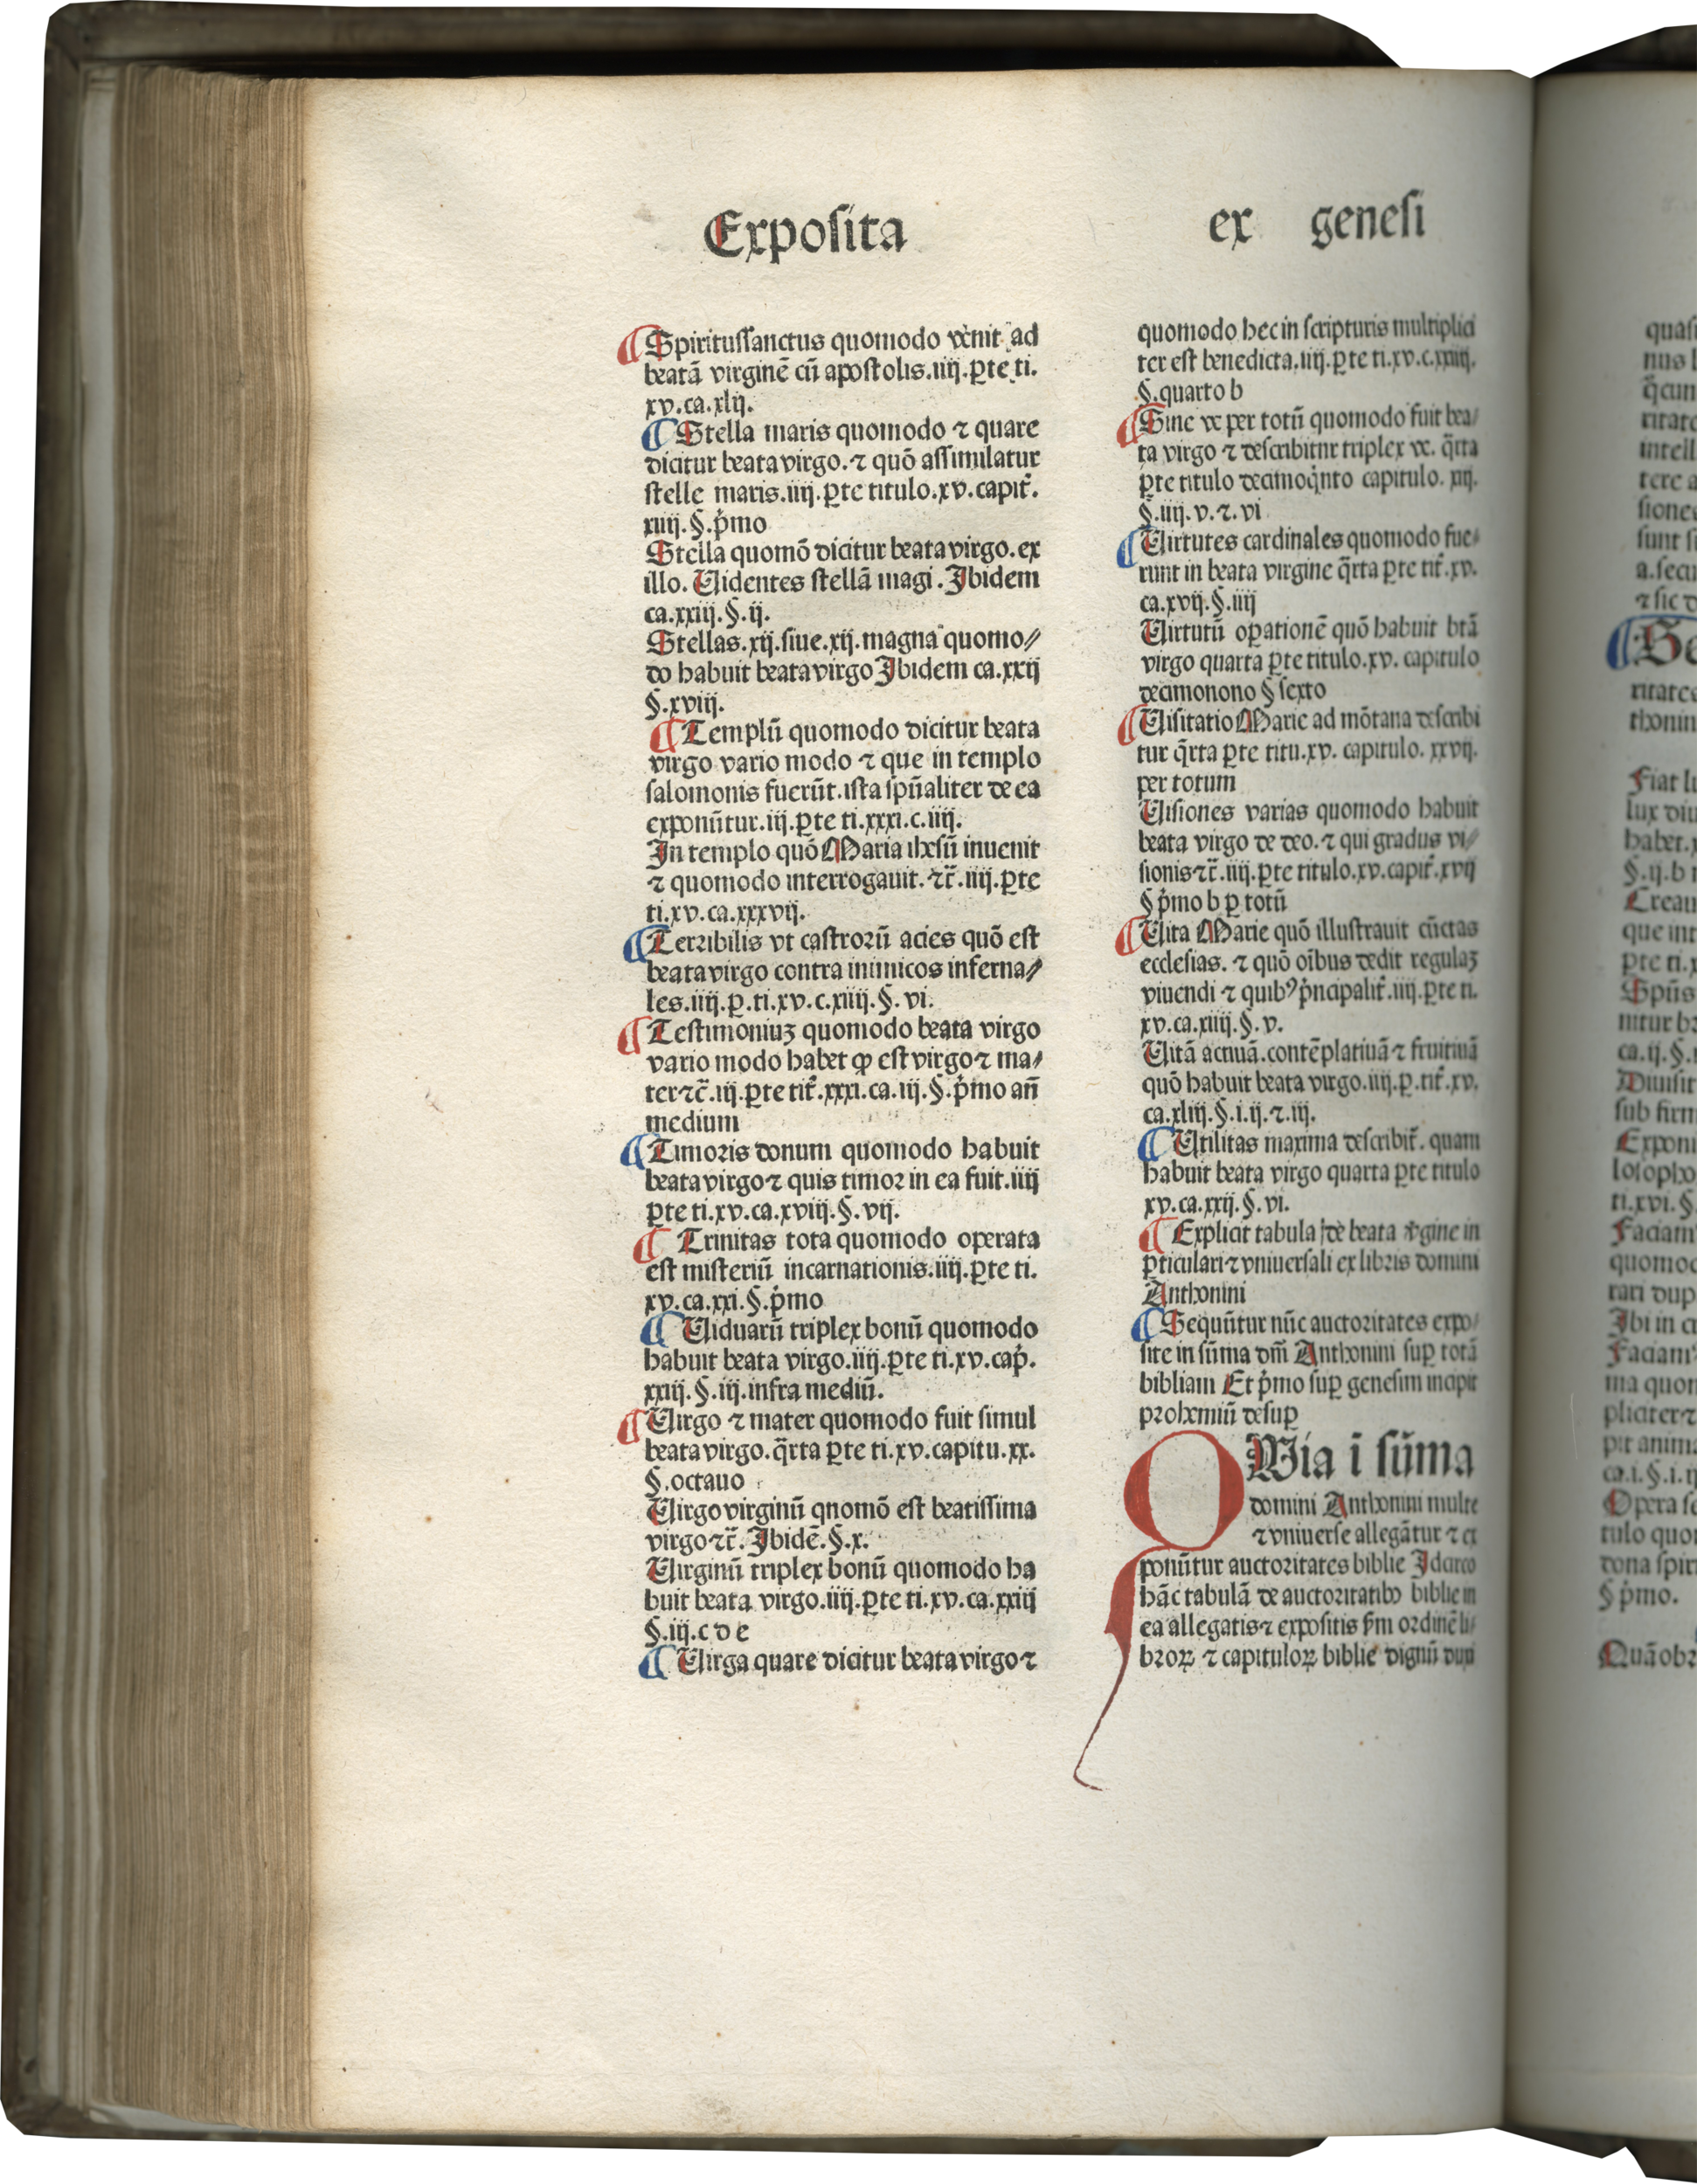 Exposita
ex genesi
Spiritussanctus quomodo venit ad
beatā virginē cū apostolis.iiij.ꝑte ti.
xv.ca.xlij.
Stella maris quomodo ⁊ quare
dicitur beata virgo.⁊ quō assimulatur
stelle maris.iiij.ꝑte titulo.xv.capit̄.
xiiij.§.p̄mo
Stella quomō dicitur beata virgo.ex
illo. Uidentes stellā magi. Ibidem
ca.xxiij.§.ij.
Stellas.xij.siue.xij.magna quomo⸗
do habuit beata virgo Ibidem ca.xxij
§.xviij.
Templū quomodo dicitur beata
virgo vario modo ⁊ que in templo
salomonis fuerūt.ista spūaliter de ea
exponūtur.iij.ꝑte ti.xxxi.c.iiij.
In templo quō Maria ihesū inuenit
⁊ quomodo interrogauit.⁊c̄.iiij.ꝑte
ti.xv.ca.xxxvij.
Terribilis vt castrorū acies quō est
beata virgo contra inimicos inferna⸗
les.iiij.ꝑ.ti.xv.c.xiiij.§.vi.
Testimoniuꝫ quomodo beata virgo
vario modo habet ꝙ est virgo ⁊ ma⸗
ter ⁊c̄.iij.ꝑte tit̄.xxxi.ca.iij.§.p̄mo an̄
medium
Timoris donum quomodo habuit
beata virgo ⁊ quis timor in ea fuit.iiij
ꝑte ti.xv.ca.xviij.§.vij.
Trinitas tota quomodo operata
est misteriū incarnationis.iiij.ꝑte ti.
xv.ca.xxi.§.p̄mo
Uiduarū triplex bonū quomodo
habuit beata virgo.iiij.ꝑte ti.xv.cap̄.
xxiij.§.iij.infra mediū.
Uirgo ⁊ mater quomodo fuit simul
beata virgo.q̄rta ꝑte ti.xv.capitu.xx.
§.octauo
Uirgo virginū qnomō est beatissima
virgo ⁊c̄. Ibidē.§.x.
Uirginū triplex bonū quomodo ha
buit beata virgo.iiij.ꝑte ti.xv.ca.xxiij
§.iij.c d e
Uirga quare dicitur beata virgo ⁊
quomodo hec in scripturis multiplici
ter est benedicta.iiij.ꝑte ti.xv.c.xxiiij.
§.quarto b
Sine ve per totū quomodo fuit bea⸗
ta virgo ⁊ describitnr triplex ve. q̄rta
ꝑte titulo decimoq̇nto capitulo. xij.
§.iiij.v.⁊.vi
Uirtutes cardinales quomodo fue⸗
runt in beata virgine q̄rta ꝑte tit̄.xv.
ca.xvij.§.iiij
Uirtutū oꝑationē quō habuit btā
virgo quarta ꝑte titulo.xv. capitulo
decimonono § sexto
Uisitatio Marie ad mōtana describi
tur q̄rta ꝑte titu.xv. capitulo. xxvij.
per totum
Uisiones varias quomodo habuit
beata virgo de deo.⁊ qui gradus vi⸗
sionis ⁊c̄.iiij.ꝑte titulo.xv.capit̄.xvij
§ p̄mo b ꝑ totū
Uita Marie quō illustrauit cūctas
ecclesias.⁊ quō oībus dedit regulaꝫ
viuendi ⁊ quibꝰ p̄ncipalit̄.iiij.ꝑte ti.
xv.ca.xiiij.§.v.
Uitā actiuā.contēplatiuā ⁊ fruitiuā
quō habuit beata virgo.iiij.ꝑ.tit̄.xv.
ca.xliij.§.i.ij.⁊.iij.
Utilitas maxima describit̄. quam
habuit beata virgo quarta ꝑte titulo
xv.ca.xxij.§.vi.
Explicit tabula de beata v̄gine in
ꝑticulari ⁊ vniuersali ex libris domini
Anthonini
Sequūtur nūc auctoritates expo⸗
site in sūma dn̄i Anthonini suꝑ totā
bibliam Et p̄mo suꝑ genesim incipit
prohemiū desuꝑ
QUia ī sūma
domini Anthonini multe
⁊ vniuerse allegātur ⁊ ex
ponūtur auctoritates biblie Idcirco
hāc tabulā de auctoritatibꝰ biblie in
ea allegatis ⁊ expositis ẜm ordinē li⸗
broꝝ ⁊ capituloꝝ biblie dignū duxi